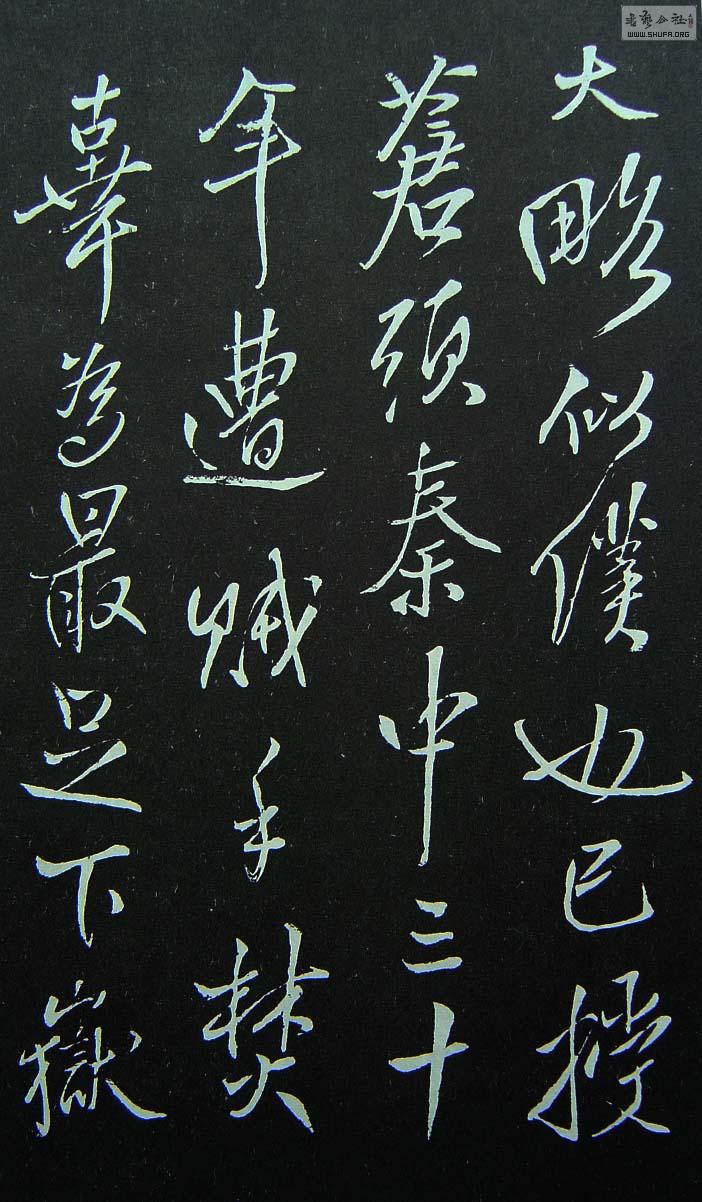 書藝公社
WWW.SHUFA.ORG
大略似僕也已授
蒼頭秦中三十
年遭賊手焚
辜為最足下嶽